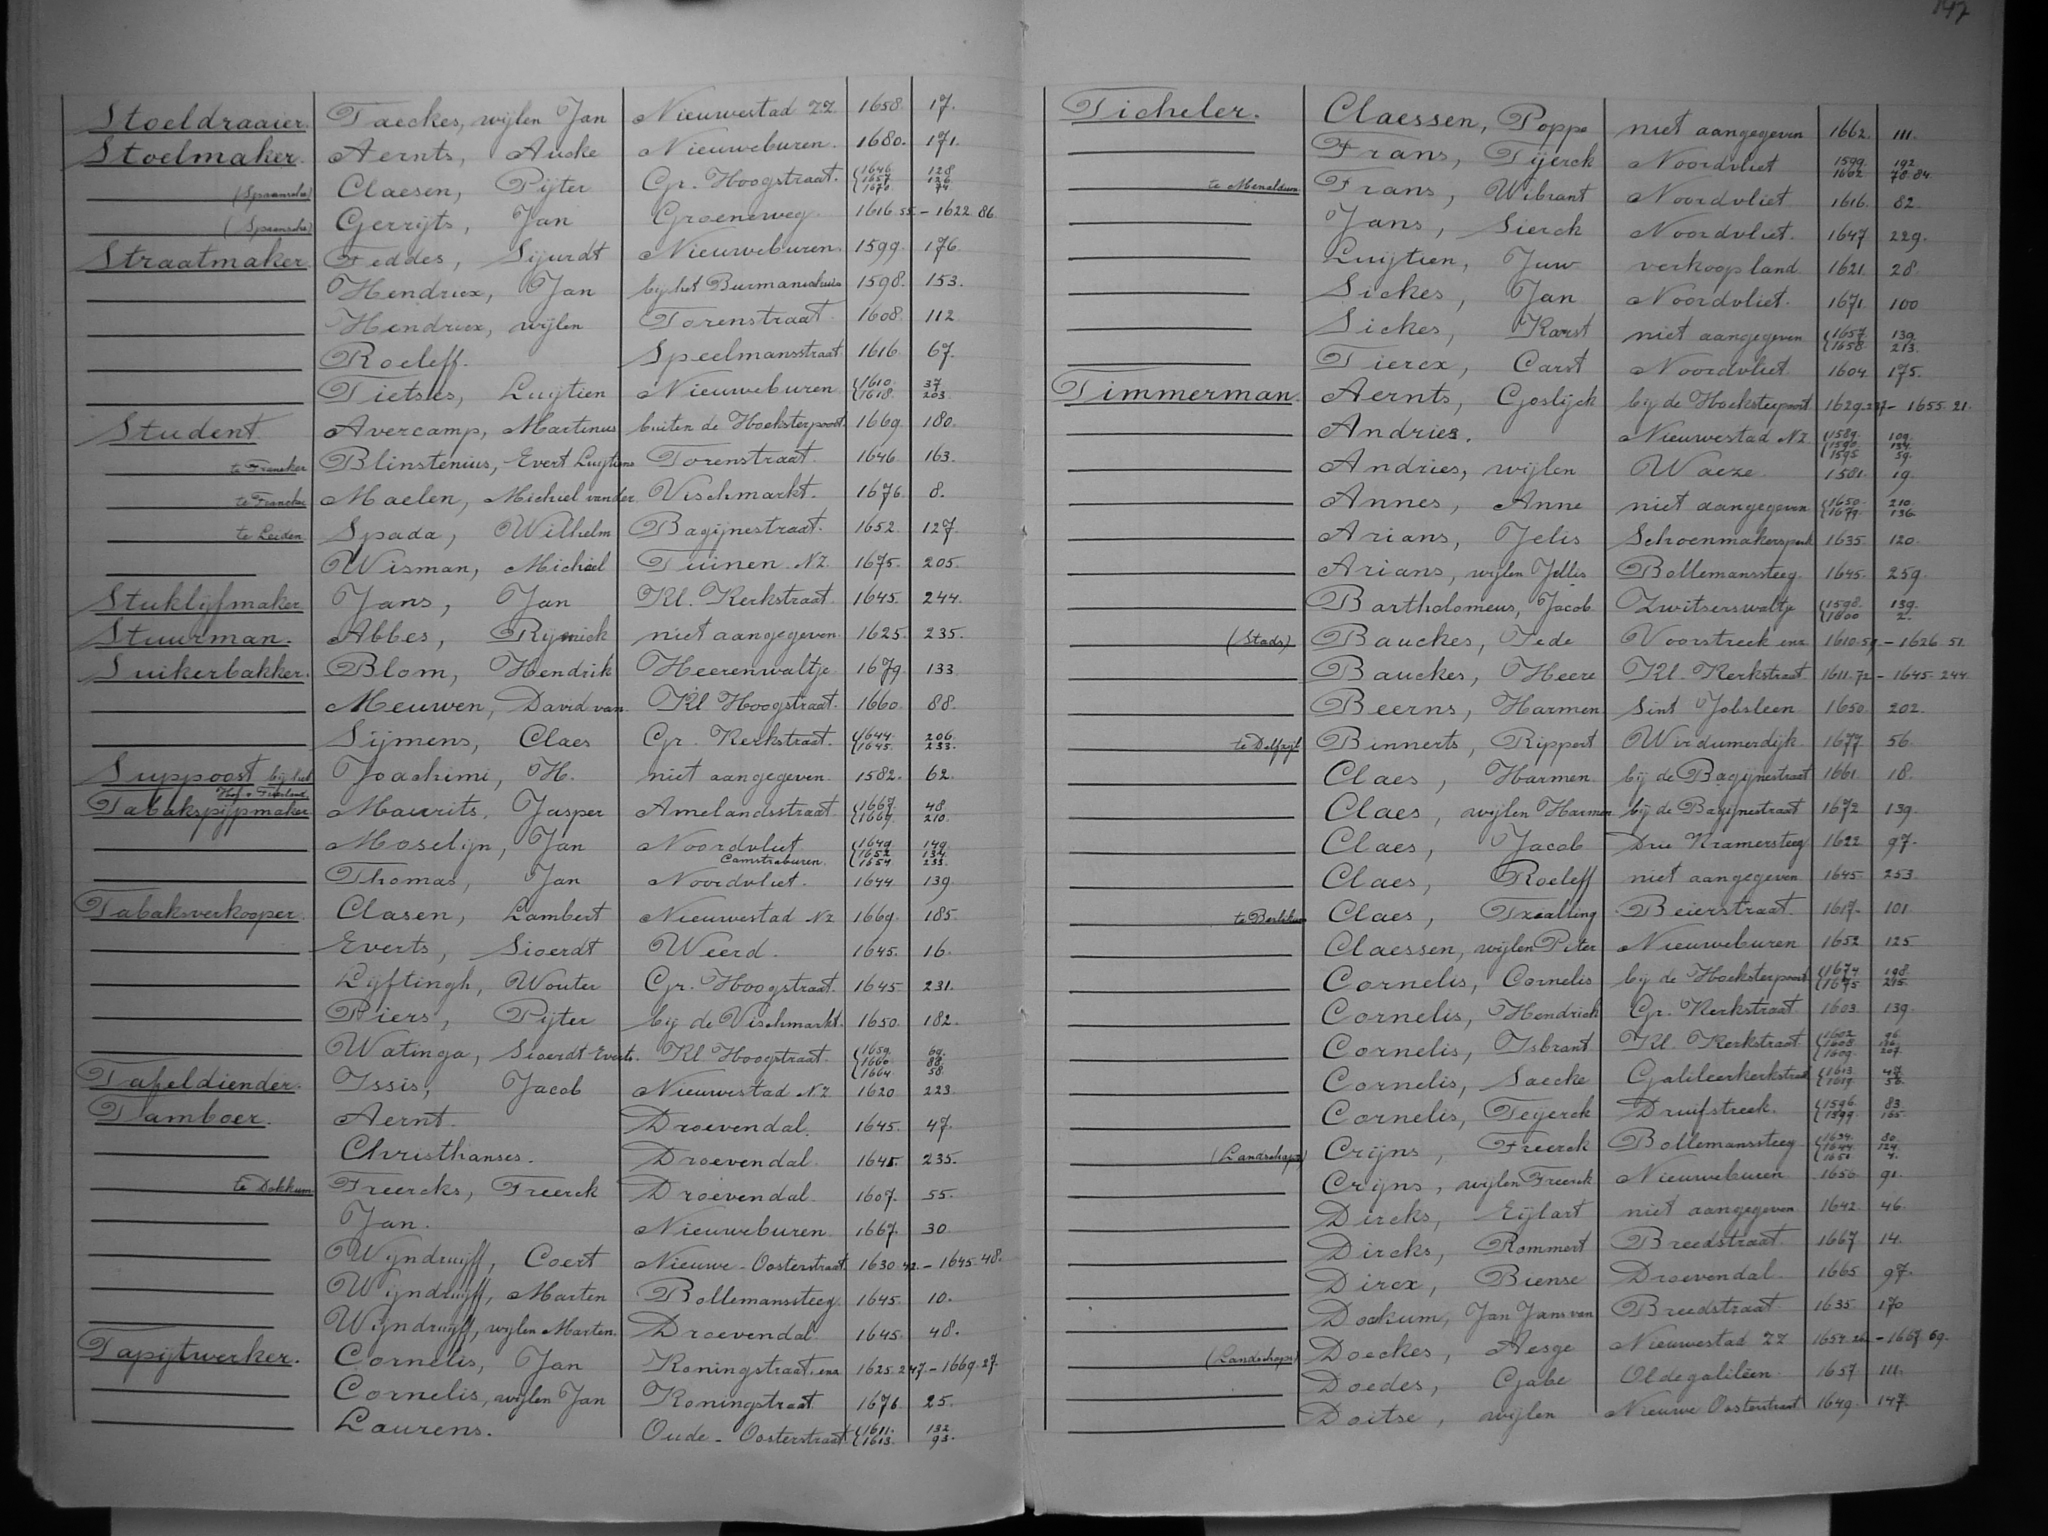 147
Stoeldraaier. Taeckes, wijlen Jan Nieuwestad ZZ 1658. 17.
Stoelmaker. Aernts, Aucke Nieuweburen. 1680. 171.
(Spaansche) Claesen, Pijter Gr. Hoogstraat. 1646. 1657. 1676. 128 126 74.
(Spaansche) Gerrijts, Jan Groeneweg. 1616.55.-1622.86.
Straatmaker. Feddes, Sijurdt Nieuweburen. 1599. 176.
Hendricx, Jan bij het Burmaniahuis 1598. 153.
Hendricx, wijlen Torenstraat 1608. 112
Roeleff. Speelmansstraat 1616. 67.
Tietses, Luijtien Nieuweburen 1610. 1618. 37 203.
Student Avercamp, Martinus buiten de Hoeksterpoort 1669. 180.
te Franeker Blinstenius, Evert Luijtiens Torenstraat. 1646. 163.
te Franeker Maelen, Michiel van der Vischmarkt. 1676. 8.
te Leiden Spada, Wilhelm Bagijnestraat. 1652. 127.
Wisman, Michiel Tuinen NZ. 1675. 205.
Stuklijfmaker Jans, Jan Kl. Kerkstraat. 1645. 244.
Stuurman. Abbes, Rijnick niet aangegeven. 1625. 235.
Suikerbakker. Blom, Hendrik Heerenwaltje 1679. 133
Meuwen, David van Kl Hoogstraat. 1660. 88.
Sijmens, Claes Gr. Kerkstraat. 1644. 1645. 206. 233.
Suppoost bij het Hof v Friesland. Joachimi, H. niet aangegeven. 1582. 62.
Tabakspijpmaker Maurits, Jasper Amelandsstraat 1667. 1669. 48. 210.
Moselijn, Jan Noordvliet Camstraburen. 1649. 1652. 1654. 149. 134. 233.
Thomas, Jan Noordvliet. 1644. 139.
Tabaksverkooper. Clasen, Lambert Nieuwestad NZ 1669. 185.
Everts, Sioerdt Weerd. 1645. 16.
Lijftingh, Wouter Gr. Hoogstraat. 1645. 231.
Piers, Pijter bij de Vischmarkt. 1650. 182.
Watinga, Sioerdt Everts. Kl Hoogstraat. 1659. 1660. 1664. 69. 88. 58.
Tafeldiender. Issis, Jacob Nieuwestad NZ 1620 223.
Tamboer. Aernt. Droevendal. 1645. 47.
Christhanses. Droevendal. 1645. 235.
te Dokkum Freercks, Freerck Droevendal. 1607. 55.
Jan. Nieuweburen. 1667. 30.
Wijndruijff, Coert Nieuwe-Oosterstraat. 1630.42.-1645.48.
Wijndruijff, Marten Bollemanssteeg. 1645. 10.
Wijndruijff, wijlen Marten. Droevendal. 1645. 48.
Tapijtwerker. Cornelis, Jan Koningstraat enz 1625.247.-1669.27.
Cornelis, wijlen Jan Koningstraat 1676. 25.
Laurens. Oude-Oosterstraat 1611. 1613. 132. 93.
Ticheler. Claessen, Poppe niet aangegeven 1662. 111.
Frans, Tijerck Noordvliet 1599. 1602 192 78.84.
te Menaldum Frans, Wibrant Noordvliet 1616. 82
Jans, Sierck Noordvliet. 1647 229.
Luijtien, Juw verkoop land. 1621. 28.
Sickes, Jan Noordvliet. 1671. 100
Sickes, Karst niet aangegeven 1657. 1658. 139. 213.
Tierex, Carst Noordvliet 1604. 175.
Timmerman. Aernts, Goslijck bij de Hoeksterpoort 1629.237-1655.21.
Andries. Nieuwestad NZ 1589. 1590. 1595 109. 134. 59.
Andries, wijlen Waeze 1581. 19.
Annes, Anne niet aangegeven 1650. 1679. 210. 136.
Arians, Jelis Schoenmakersperk 1635. 120.
Arians, wijlen Jellis Bollemanssteeg. 1645. 259.
Bartholomeus, Jacob Zwitserswaltje 1598. 1600 139. 2.
(Stads) Bauckes, Tede Voorstreek enz 1610.51.-1626.51.
Bauckes, Heere Kl. Kerkstraat. 1611.72-1645.244.
Beerns, Harmen Sint Jobsleen 1650. 202.
te Delfzijl Binnerts, Rippert Wirdumerdijk. 1677. 56.
Claes, Harmen bij de Bagijnestraat 1661. 18.
Claes, wijlen Harmen bij de Bagijnestraat 1672 139.
Claes, Jacob Drie Kramersteeg 1622 97.
Claes, Roeleff niet aangegeven 1645. 253.
te Berlikum Claes, Txialling Beierstraat. 1617. 101.
Claessen, wijlen Piter Nieuweburen 1652 125
Cornelis, Cornelis bij de Hoeksterpoort 1674 1675 198. 215.
Cornelis, Hendrick Gr. Kerkstraat 1603. 139.
Cornelis, Isbrant Kl. Kerkstraat 1602. 1608 1609. 96. 207.
Cornelis, Saecke Galileerkerkstraat 1613 1619. 47. 56.
Cornelis, Teyerck Druifstreek. 1596 1599. 83. 165.
(Landschaps) Crijns, Freerck Bollemanssteeg 1634. 1644. 1651 80. 124. 4.
Crijns, wijlen Freerck Nieuweburen 1656 91.
Dircks, Eijlart niet aangegeven 1642 46.
Dircks, Rommert Breedstraat. 1667 14.
Direx, Biense Droevendal. 1665 97.
Dockum, Jan Jans van Breedstraat. 1635. 170
(Landschaps) Doeckes, Aesge Nieuwestad ZZ 1654.26.-1667.69.
Doedes, Gabe Oldegaliléen. 1657 111.
Doitse, wijlen Nieuwe Oosterstraat 1649. 147.